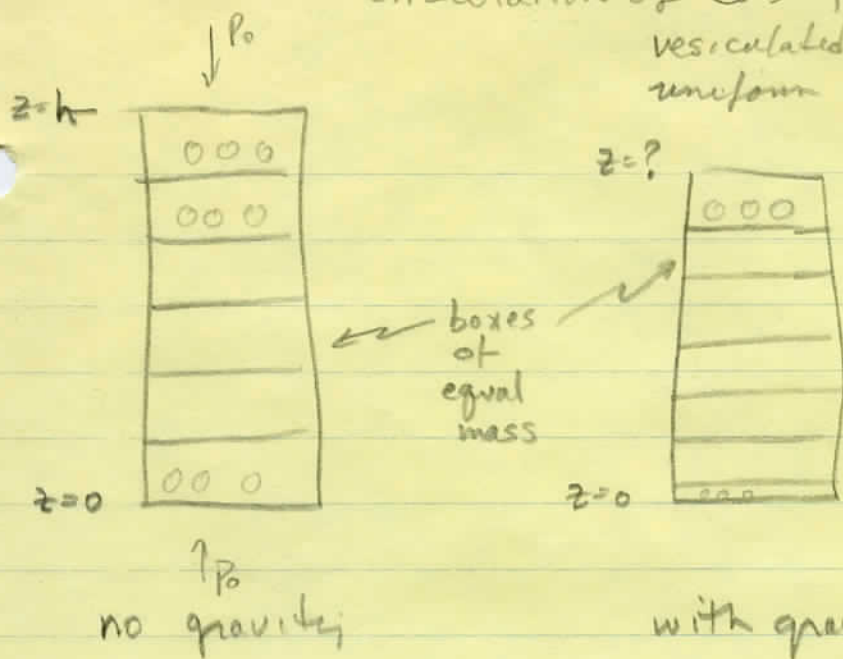 vesiculated
uniform
↓ P₀
z=h
z=?
boxes
of
equal
mass
z=0
z=0
↑ P₀
no gravity
with